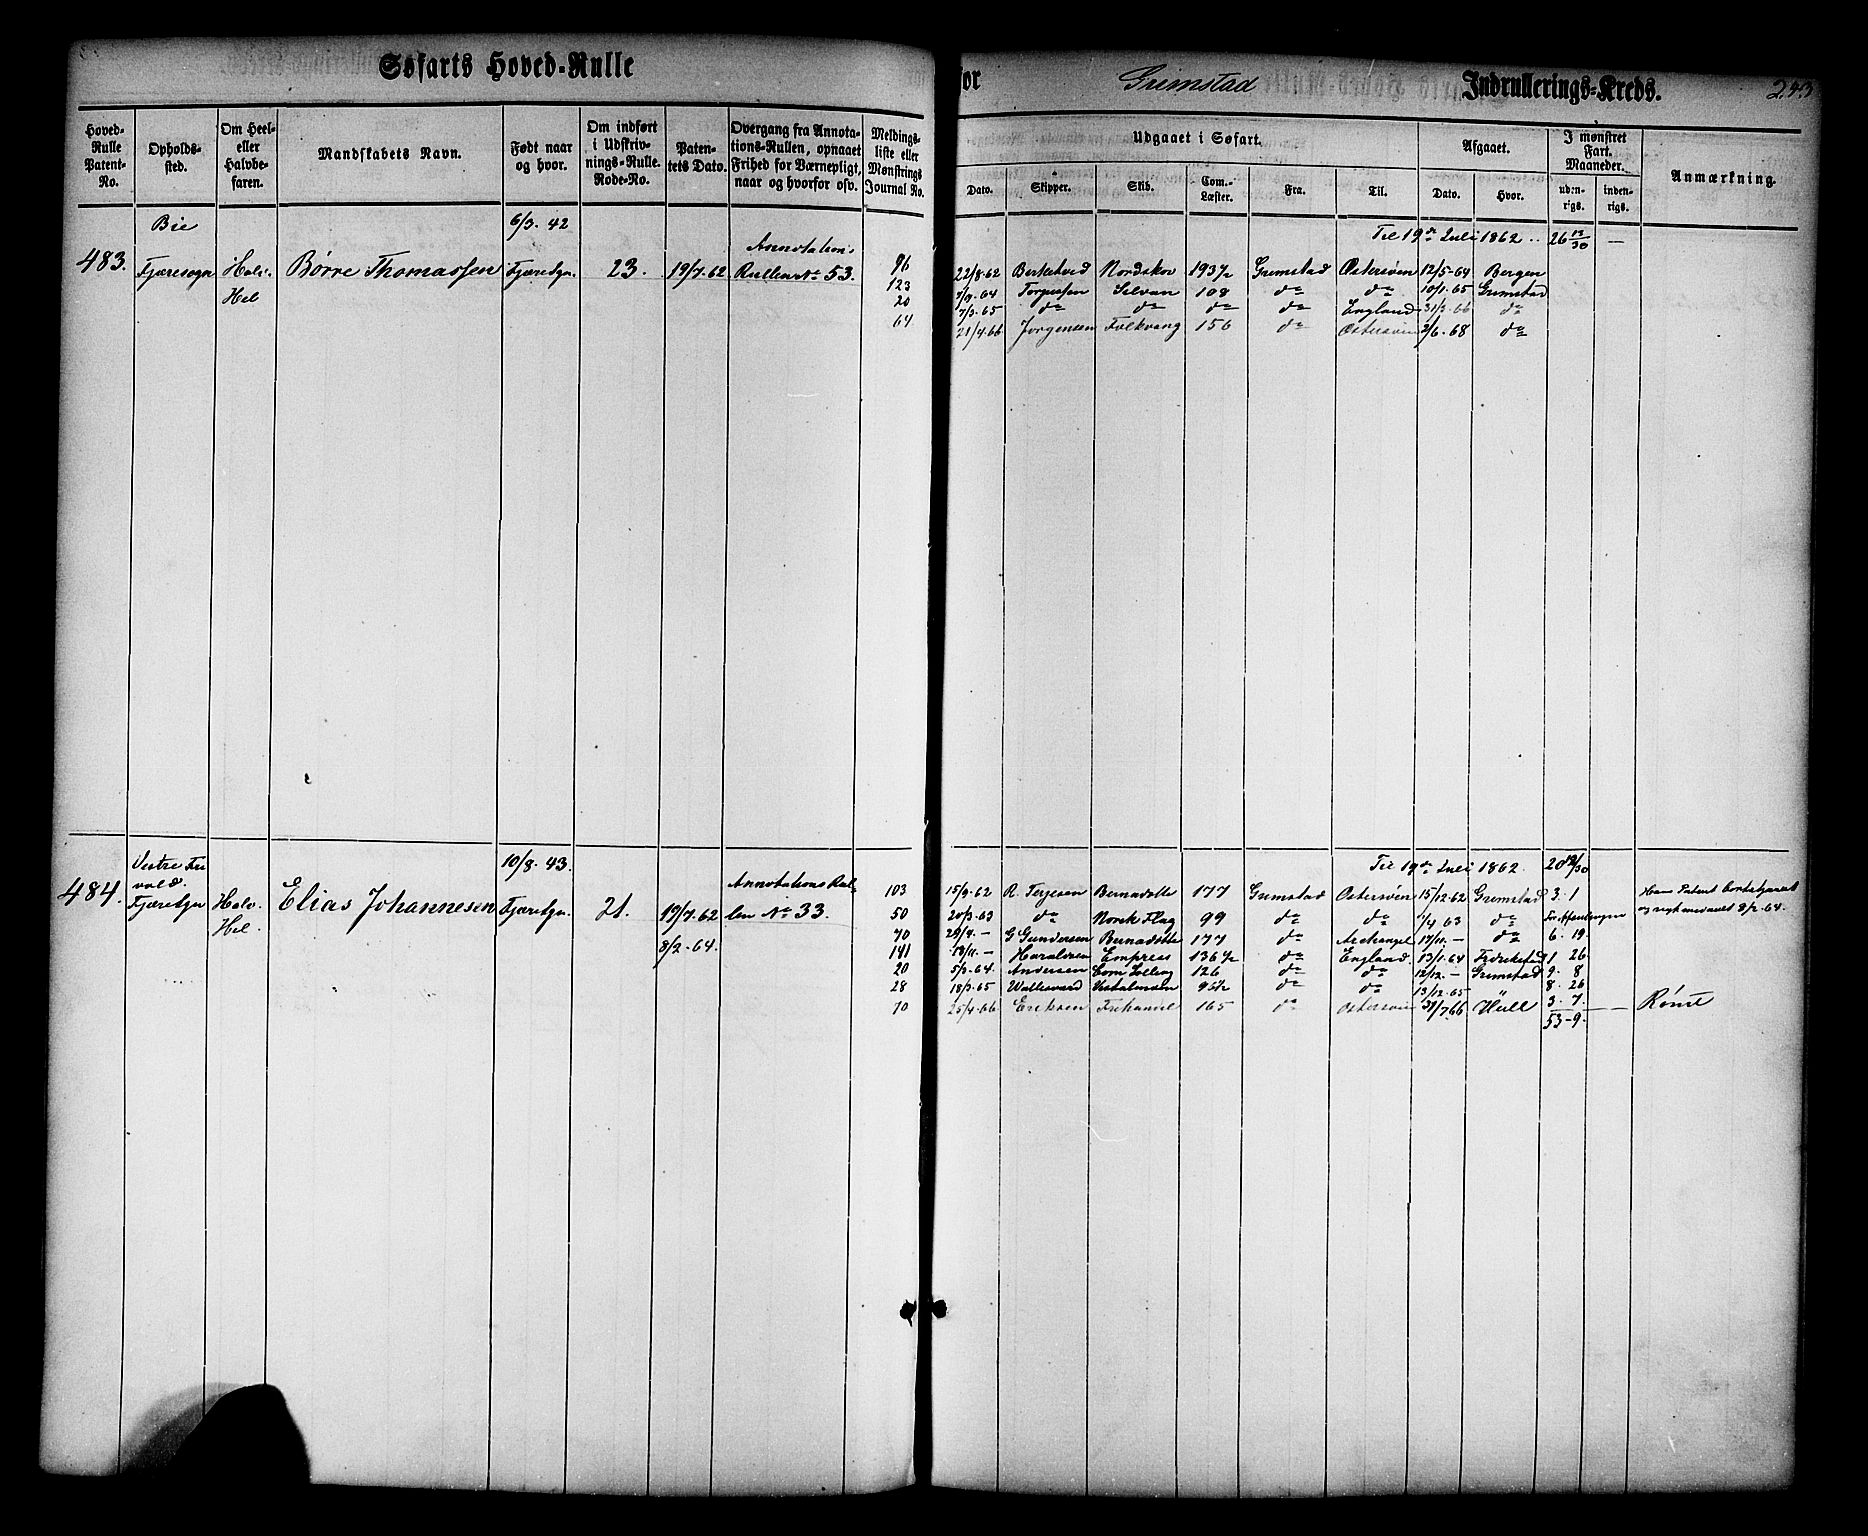 Søfarts Hoved-Rulle for Grimstad Indrullerings-Kreds. 243
Hoved-Rulle Patent-No.
Opholds-sted.
Om Heel- eller Halvbe-faren.
Mandskabets Navn.
Født naar og hvor.
Om indført i Udskriv-nings-Rulle. Rode-No.
Paten-tets Dato.
Overgang fra Annota-tions-Rullen, opnaaet Frihed for Værnepligt, naar og hvorfor osv.
Meldings-liste eller Mønstrings Journal No.
Udgaaet i Søfart.
Dato. Skipper. Skib. Com.-Læster. Fra. Til.
Afgaaet.
Dato. Hvor.
I mønstret Fart. Maaneder.
uden-rigs. inden-rigs.
Anmærkning.
Bie 6/3. 42 Til 19de Juli 1862 .. 26 13/30 —
483. Fjæresogn Halv. Børre Thomassen Fjæresgn. 23. 19/7. 62 Annotations Rullen No 53.
Hel
96 22/8. 62 Nordskov 193 1/2 Grimstad Østersøen 12/5. 64 Bergen
123 64 Torgersen Selvan 108 do do 10/1. 65 Grimstad
20 7/3. 65 do do do do England 31/3 66 do
64 21/4. 66 Jørgensen Folkvang 156 do Østersøen 2/6. 68 do
Vestre 10/8. 43. Til 19de Juli 1862. 20
484. Fjæresgn Halv. Elias Johannesen Fjæresgn. 21. 19/7. 62 Annotations Rullen No 33.
Hel. 8/2. 64.
103 15/9. 62 R. Terjesen Bernadotte 177 Grimstad Østersøen 15/12 62 Grimstad 3. 1
50 20/3. 63 do Norsk Flag 99 do do 1/4 63 do
70 G Gundersen Bernadotte 177 do Archangel 17/11. — do 6. 19
141 18/11. — Haraldsen Empress 136 1/2 do England 13/1. 64 Fredrikstad 1 26
20 5/2. 64. Andersen 126 do do 12/12. — Grimstad 9. 8
28 18/3. 65 95 1/2 do do 13/12. 65 8. 26
70 25/4. 66 Eriksen 165 do Østersøen 31/7 66 Hull 3. 7.
53-9. — Rømt
Hans Patent bortkommet og nyt 8/2. 64.